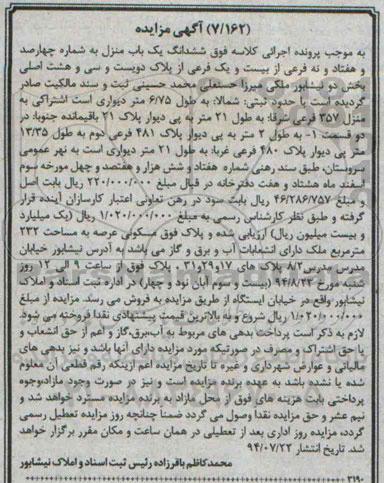 (۷/۱۶۲) آگهی مزایده
به موجب پرونده اجرائی کلاسه فوق ششدانگ یک باب منزل به شماره چهارصد
و هفتاد و نه فرعی از بیست و یک فرعی از پلاک دویست و سی و هشت اصلی
بخش دو نیشابور ملکی میرزا حسنعلی محمد حسینی ثبت و سند مالکیت صادر
گردیده است با حدود ثبتی: شمالا: به طول ۶/۷۵ متر دیواری است اشتراکی به
منزل ۳۵۷ فرعی شرقا: به طول ۲۱ متر به پی دیوار پلاک ۲۱ باقیمانده جنوبا: در
دو قسمت ۱- به طول ۲ متر به پی دیوار پلاک ۴۸۱ فرعی دوم به طول ۱۳/۳۵
متر پی دیوار پلاک ۴۸۰ فرعی غربا: به طول ۲۱ متر دیواری است به نهر عمومی
سروستان، طبق سند رهنی شماره هفتاد و شش هزار و هفتصد و چهل مورخه سوم
اسفند ماه هشتاد و هفت دفترخانه در قبال مبلغ ۲۲۰/۰۰۰/۰۰۰ ریال بابت اصل
و مبلغ ۴۶/۲۸۶/۷۵۷ ریال بابت سود در رهن تعاونی اعتبار کارسازان آینده قرار
گرفته و طبق نظر کارشناس رسمی به مبلغ ۱/۰۲۰/۰۰۰/۰۰۰ ریال (یک میلیارد
و بیست میلیون ریال) ارزیابی شده و پلاک فوق مسکونی عرصه به مساحت ۲۳۲
مترمربع ملک دارای انشعابات آب و برق و گاز می باشد به آدرس نیشابور خیابان
مدرس مدرس۸/۲ پلاک های ۱۷و۲۹و۳۱ پلاک فوق از ساعت ۹ الی ۱۲ روز
شنبه مورخ ۹۴/۸/۲۳ (بیست و سوم آبان نود و چهار) در اداره ثبت اسناد و املاک
نیشابور واقع در خیابان ایستگاه از طریق مزایده به فروش می رسد. مزایده از مبلغ
۱/۰۲۰/۰۰۰/۰۰۰ ریال شروع و به بالاترین قیمت پیشنهادی نقدا فروخته می شود.
لازم به ذکر است پرداخت بدهی های مربوط به آب،برق،گاز و اعم از حق انشعاب و
یا حق اشتراک و مصرف در صورتیکه مورد مزایده دارای آنها باشد و نیز بدهی های
مالیاتی و عوارض شهرداری و غیره تا تاریخ مزایده اعم ازینکه رقم قطعی آن معلوم
شده یا نشده باشد به عهده برنده مزایده است و نیز در صورت وجود مازاد،وجوه
پرداختی بابت هزینه های فوق از محل مازاد به برنده مزایده مسترد خواهد شد و
نیم عشر و حق مزایده نقدا وصول می گردد ضمنا چنانچه روز مزایده تعطیل رسمی
گردد، مزایده روز اداری بعد از تعطیلی در همان ساعت و مکان مقرر برگزار خواهد
شد. تاریخ انتشار ۹۴/۰۷/۲۲
محمدکاظم باقرزاده رئیس ثبت اسناد و املاک نیشابور
۳۱۹۰